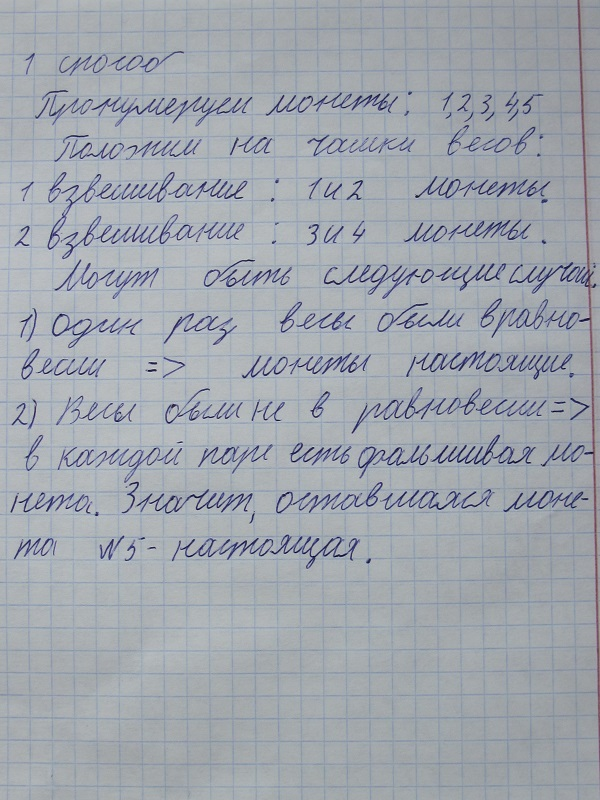 1 способ
Пронумеруем монеты: 1,2,3,4,5
Положим на чашки весов:
1 взвешивание : 1 и 2 монеты.
2 взвешивание : 3 и 4 монеты.
Могут быть следующие случаи.
1) Один раз весы были в равно-
весии => монеты настоящие.
2) Весы были не в равновесии =>
в каждой паре есть фальшивая мо-
нета. Значит, оставшаяся моне-
та №5 - настоящая.